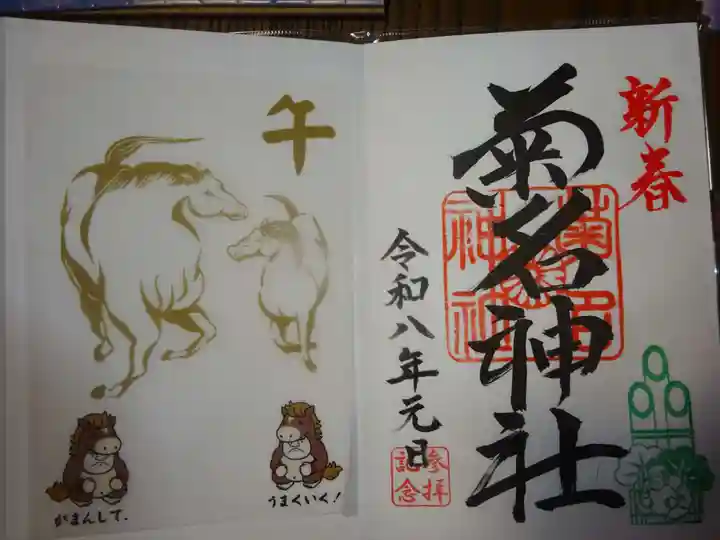 新春
菊名神社
令和八年元日
参拝
記念
午
がまんして.
うまくいく!